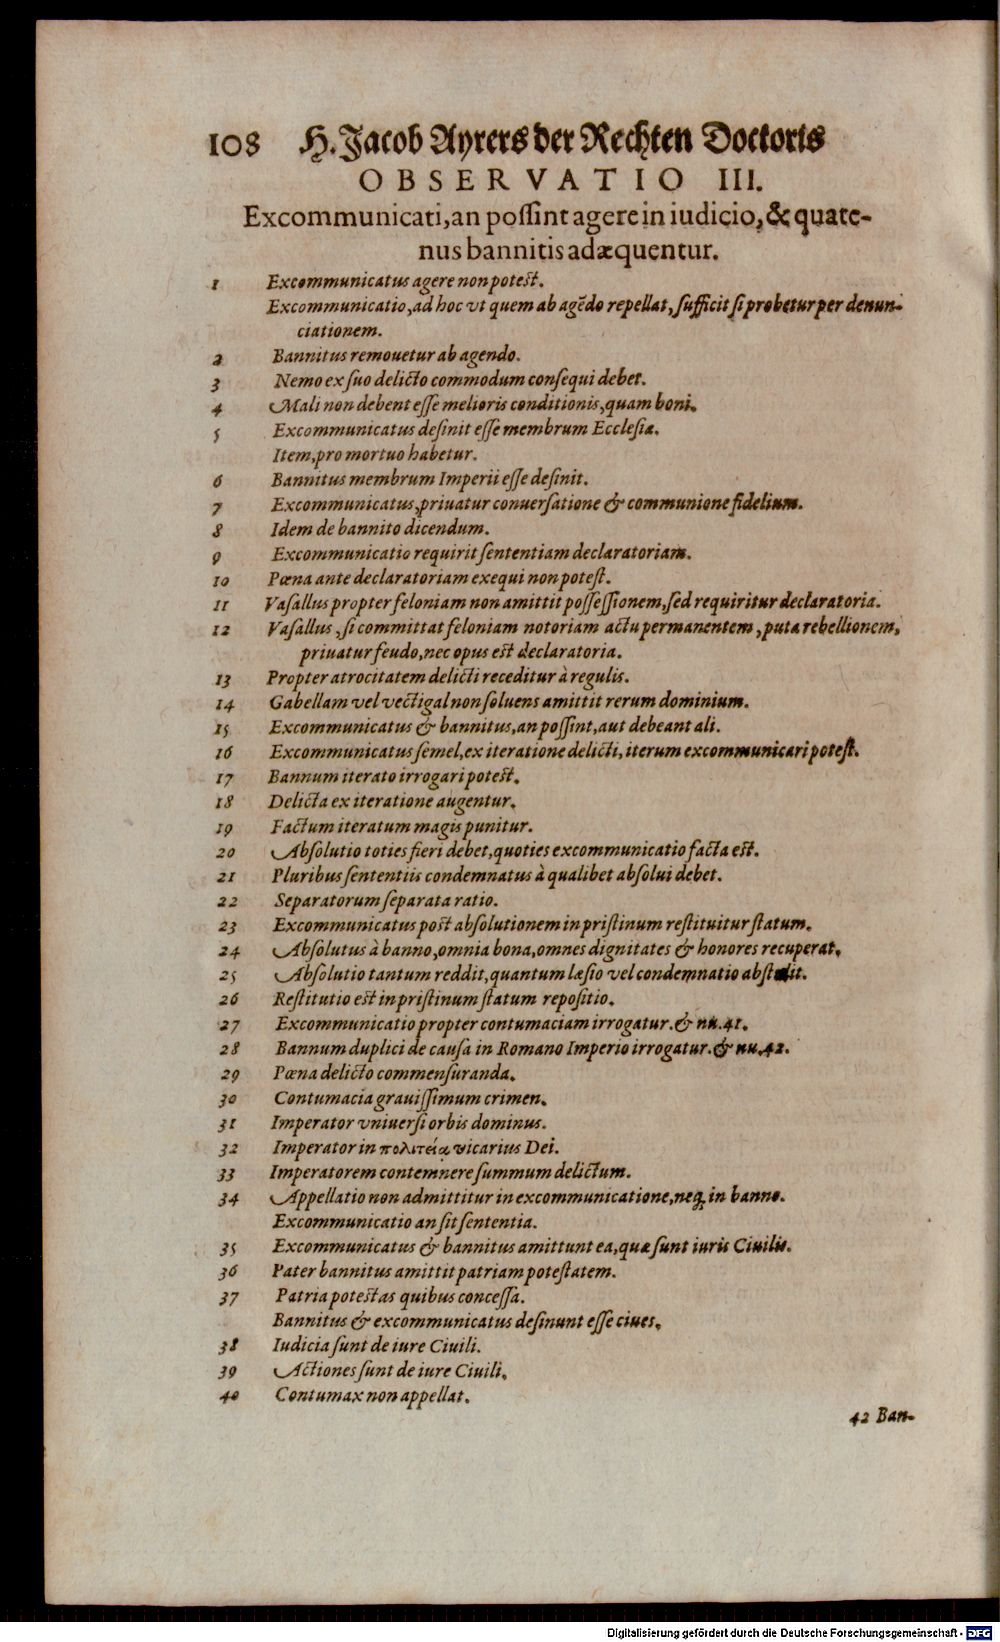 108 H. Jacob Ayrers der Rechten Doctoris
OBSERVATIO III.
Excommunicati, an poſſint agere in iudicio, & quate-
nus bannitis adæquentur.
1 Excommunicatus agere non poteſt.
Excommunicatio, ad hoc vt quem ab agẽdo repellat, ſufficit ſi probetur per denun-
ciationem.
2 Bannitus remouetur ab agendo.
3 Nemo ex ſuo delicto commodum conſequi debet.
4 Mali non debent eſſe melioris conditionis, quam boni.
5 Excommunicatus deſinit eſſe membrum Eccleſiæ.
Item, pro mortuo habetur.
6 Bannitus membrum Imperii eſſe deſinit.
7 Excommunicatus, priuatur conuerſatione & communione fidelium.
8 Idem de bannito dicendum.
9 Excommunicatio requirit ſententiam declaratoriam.
10 Pœna ante declaratoriam exequi non poteſt.
11 Vaſallus propter feloniam non amittit poſſeſſionem, ſed requiritur declaratoria.
12 Vaſallus, ſi committat feloniam notoriam actu permanentem, puta rebellionem,
priuatur feudo, nec opus eſt declaratoria.
13 Propter atrocitatem delicti receditur à regulis.
14 Gabellam vel vectigal non ſoluens amittit rerum dominium.
15 Excommunicatus & bannitus, an poſſint, aut debeant ali.
16 Excommunicatus ſemel, ex iteratione delicti, iterum excommunicari poteſt.
17 Bannum iterato irrogari poteſt.
18 Delicta ex iteratione augentur.
19 Factum iteratum magis punitur.
20 Abſolutio toties fieri debet, quoties excommunicatio facta eſt.
21 Pluribus ſententiis condemnatus à qualibet abſolui debet.
22 Separatorum ſeparata ratio.
23 Excommunicatus poſt abſolutionem in priſtinum reſtituitur ſtatum.
24 Abſolutus à banno, omnia bona, omnes dignitates & honores recuperat.
25 Abſolutio tantum reddit, quantum læſio vel condemnatio abſtulit.
26 Reſtitutio eſt in priſtinum ſtatum repoſitio.
27 Excommunicatio propter contumaciam irrogatur. & nu. 41.
28 Bannum duplici de cauſa in Romano Imperio irrogatur. & nu. 42.
29 Pœna delicto commenſuranda.
30 Contumacia grauiſſimum crimen.
31 Imperator vniuerſi orbis dominus.
32 Imperator in πολιτείᾳ vicarius Dei.
33 Imperatorem contemnere ſummum delictum.
34 Appellatio non admittitur in excommunicatione, neq; in banno.
Excommunicatio an ſit ſententia.
35 Excommunicatus & bannitus amittunt ea, quæ ſunt iuris Ciuilis.
36 Pater bannitus amittit patriam poteſtatem.
37 Patria poteſtas quibus conceſſa.
Bannitus & excommunicatus deſinunt eſſe ciues.
38 Iudicia ſunt de iure Ciuili.
39 Actiones ſunt de iure Ciuili.
40 Contumax non appellat.
42 Ban-
Digitalisierung gefördert durch die Deutsche Forschungsgemeinschaft - DFG